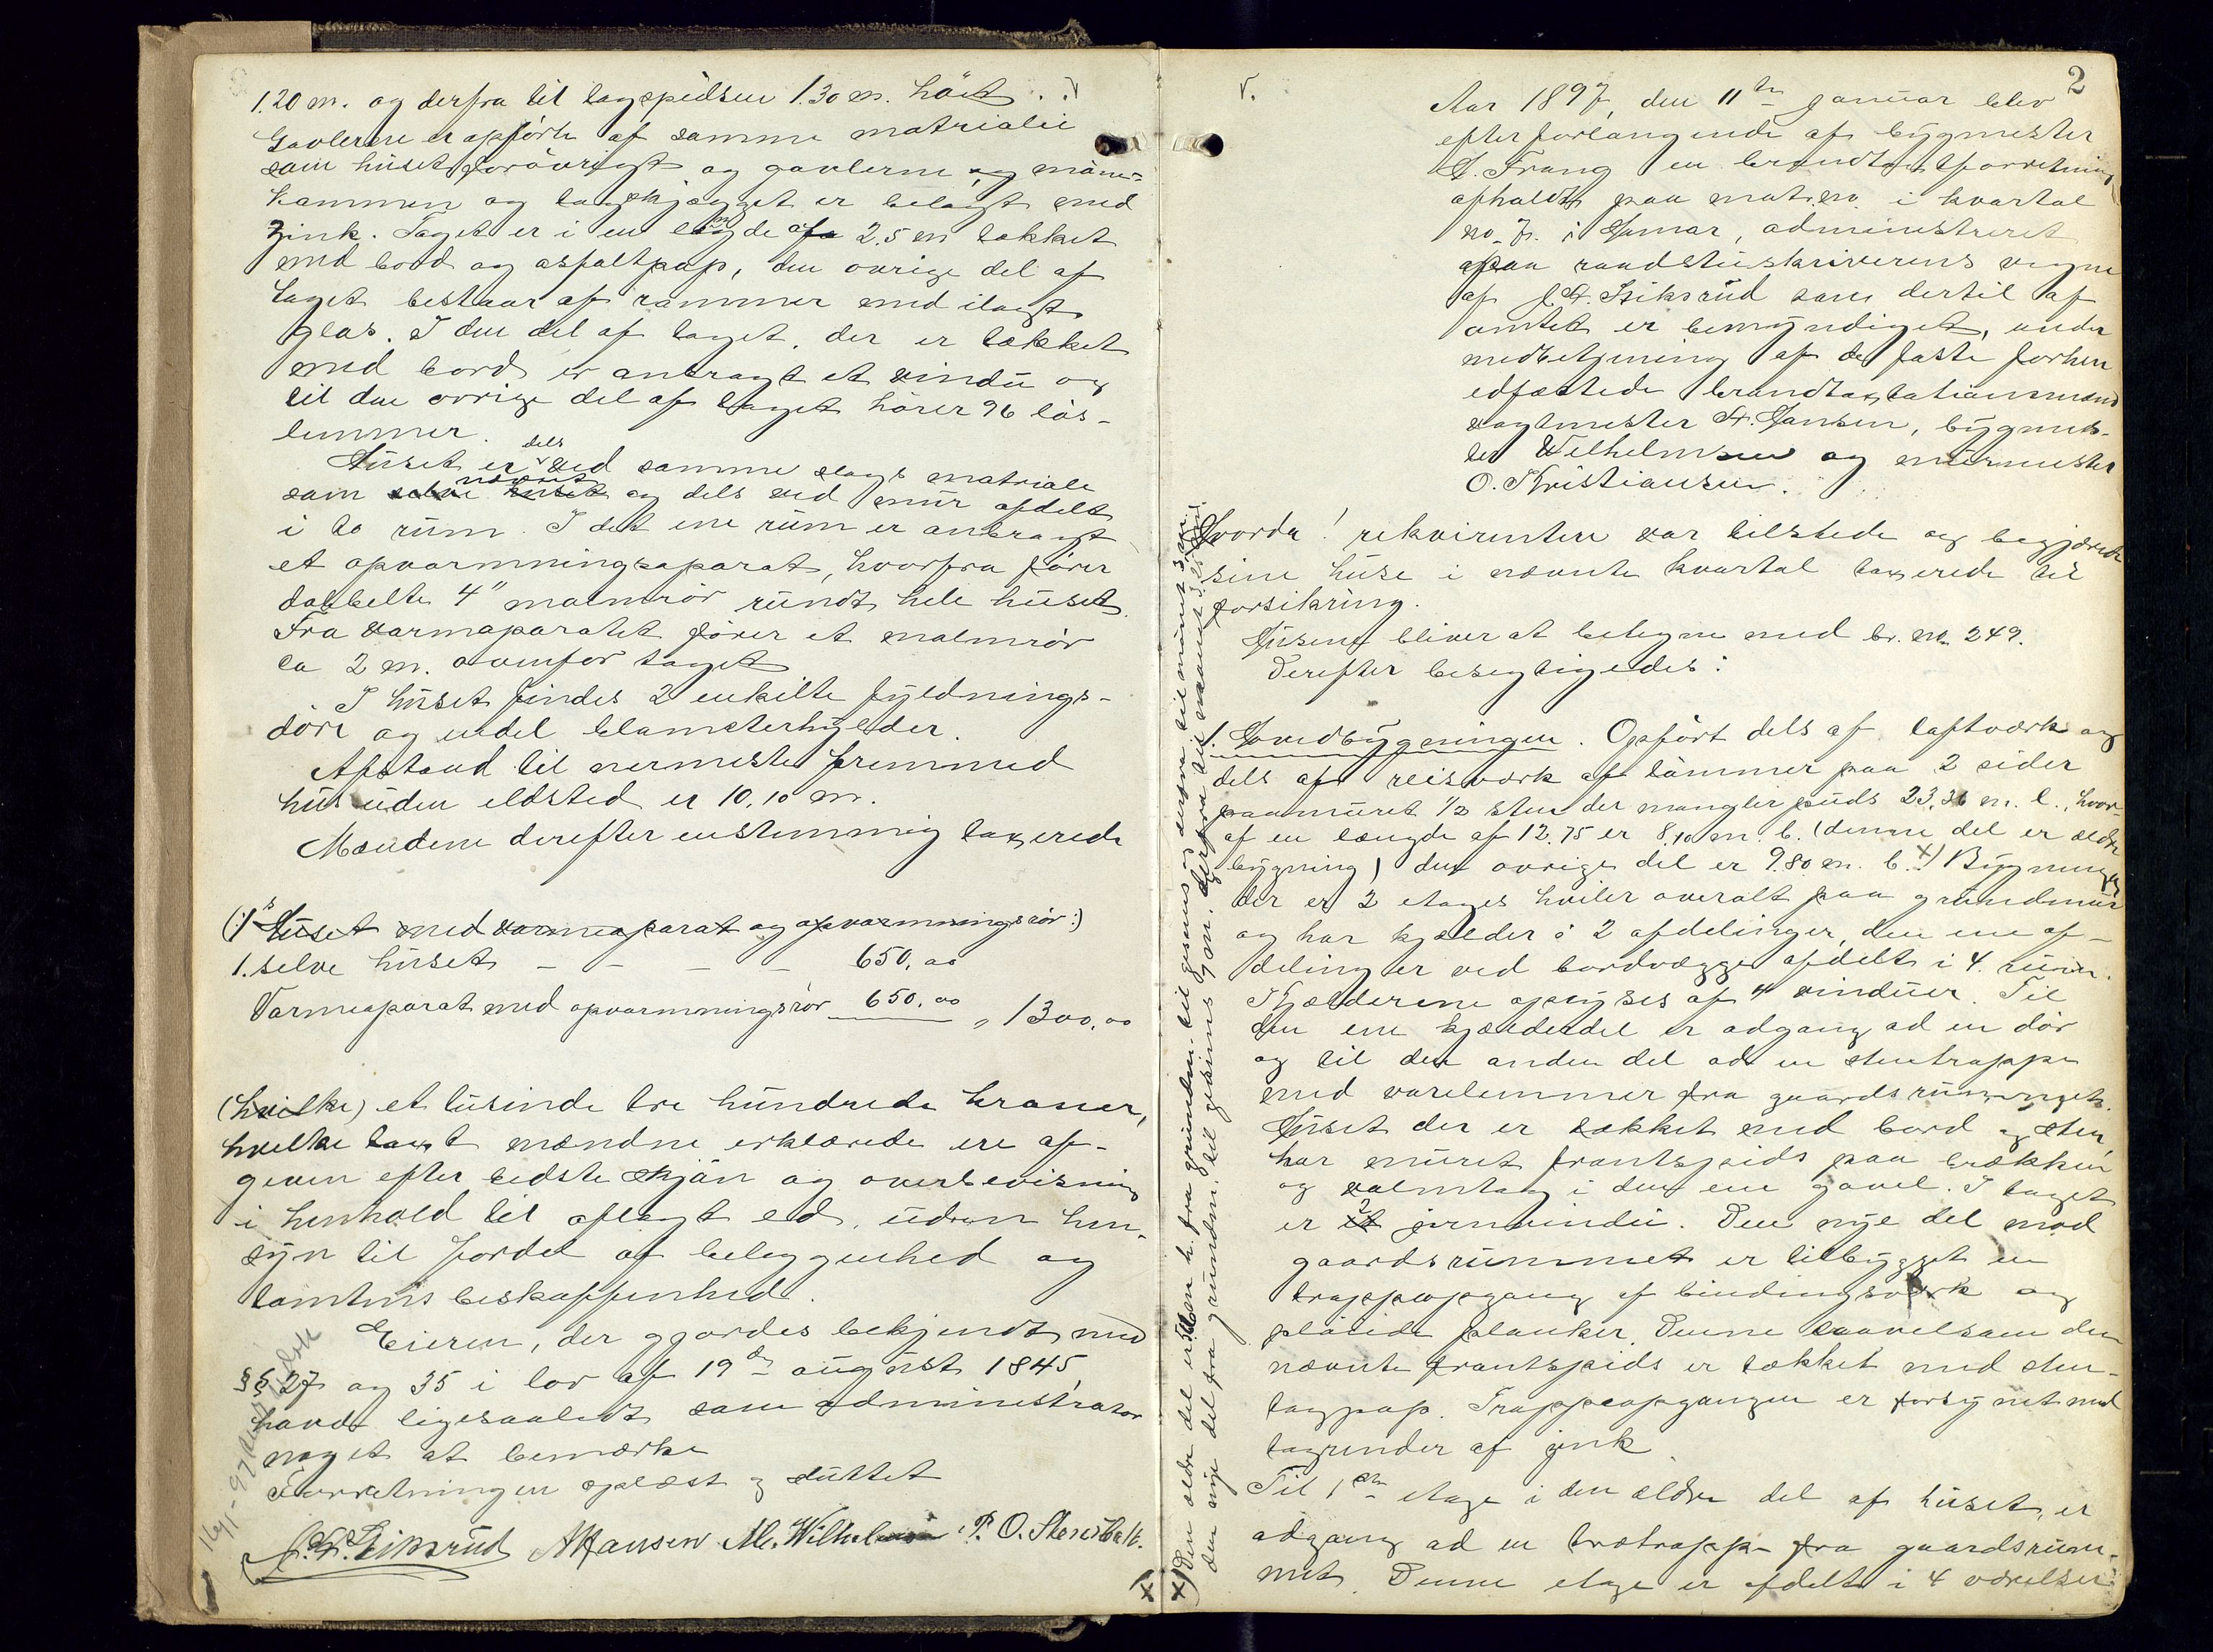 1.20 m. og derfra til tagspidsen 1.30 m. höit.
Gavlerne er opförte af samme matrialie
som huset forövrigt og gavlerne og möne-
kammen og tagskjægget er belagt med
zink. Taget er i en længde af 2.5 m takket
med bord og asfaltpap, den ovrige del af
taget bestaar af rammer med ilagt
glas. I den del af taget, der er tækket
med bord er anbragt et vindu og
til den ovrige del af taget hörer 96 lös-
lemmer.
Huset er dels ved samme slags matriale
som nævnt og dels ved mur afdelt
i to rum. I det ene rum er anbragt
et opvarmningsaparat, hvorfra förer
dobbelte 4" malmrör rundt hele huset.
Fra varmaparatet förer et malmrör
ca 2 m. ovenfor taget
I huset findes 2 enkelte fyldnings-
döre og endel blomsterhylder.
Afstand til nermeste fremmed
hus uden eldsted er 10,10 m.
Mændene derefter enstemmig taxerede
(:1 Huset med varmeaparat og opvarmningsrör:)
1. selve huset - - - - 650,00
Varmeaparat med opvarmningsrör 650,00 " 1300,00
(hvilke) et tusinde tre hundrede kroner,
hvilke taxt mændne erklærede ere af-
given efter bedste skjön og overbevisning
i henhold til aflagt ed, uden hen-
syn til fordel af beliggenhed og
tomtens beskaffenhed.
Eieren, der gjordes bekjendt med
§§ 27 og 35 i lov af 19de august 1845,
havde ligesaalidt som administrator
noget at bemærke
Forretningen oplæst og sluttet
A Hansen M. Wilhelmsen P. O. Stensbakk.
2
Aar 1897, den 11te Januar blev
efter forlangende af bygmester
G. Frang en brandtaxtforretning
afholdt paa mat. no. i kvartal
no. 7. i Hamar, administreret
paa raadstueskriverens vegne
af som dertil af
amtet er bemyndiget, under
medbetjening af de faste forhen
edfæstede brandtaxtationsmænd
vagtmester A. Hansen, bygmes-
ter Wilhelmsen og murmester
O. Kristiansen.
Hvorda! rekvirenten var tilstede og begjærede
sine huse i nævnte kvartal taxerede til
forsikring.
Husene bliver at betegne med br. no 249.
Derefter besigtigedes:
1. Hovedbygningen. Opfört dels af laftværk og
dels af reisværk af tömmer paa 2 sider
paamuret 1/2 sten der mangler puds 23,36 m. l., hvor-
af en længde af 12.75 er 8,10 m. b. (denne del er ældre
bygning) den ovrige del er 9.80 m. b. x) Bygningen
der er 2 etages hviler overalt paa grundmur
og har kjælder i 2 afdelinger, den ene af-
deling er ved bordvægge afdelt i 4 rum.
Kjælderene oplyses af 4 vinduer. Til
den ene kjælderdel er adgang ad en dör
og til den anden del ad en stentrappe
med varelemmer fra gaardsrummet.
Huset der er tækket med bord og sten
har muret frontspids paa brækken
og valmtag i den ene gavel. I taget
er 2 jernvindu. Den nye del mod
gaardsrummet er tilbygget en
trappeopgang af bindingsværk og
plöiede planker. Denne saavelsom den
nævnte frontspids er tækket med sten-
tagpap. Trappeopgangen er forsynet med
tagrender af zink
Til 1ste etage i den ældre del af huset, er
adgang ad en trætrappe fra gaardsrum-
met. Denne etage er afdelt i 4 værelser